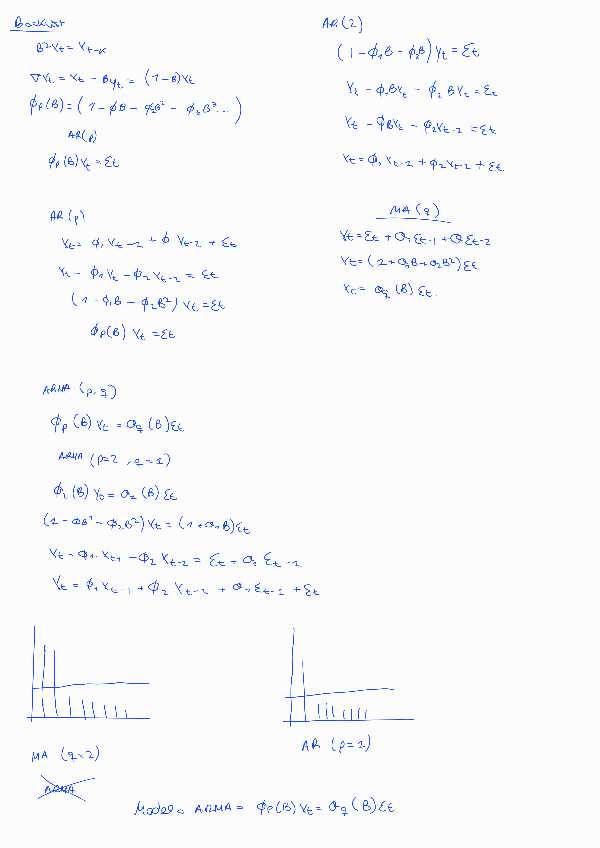 Backshift
B²Yt = Yt-k
∇Yt = Yt - Byt = (1-B)Yt
ϕp(B) = (1 - ϕB - ϕ2B² - ϕtB³...)
AR(p)
ϕp(B)Yt = Εt
AR(2)
(1 - ϕ1B - ϕ2B)Yt = Εt
Yt - ϕ1BYt - ϕ2BYt = Εt
Yt - ϕBYt - ϕ2Yt-2 = Εt
Yt = ϕ1Yt-2 + ϕ2Yt-2 + Εt
AR(p)
Yt = ϕ1Yt-2 + ϕ Yt-2 + Εt
Yt - ϕ1Yt - ϕ2Yt-2 = Εt
(1 - ϕ1B - ϕ2B²) Yt = Εt
ϕp(B) Yt = Εt
MA(q)
Yt = Εt + Θ1Εt-1 + ΘΕt-2
Yt = (1 + Θ1B + Θ2B²)Εt
Yt = Θq(B)Εt.
ARMA (p,q)
ϕp(B)Yt = Θq(B)Εt
ARMA (p=2, q=1)
ϕ2(B)Yt = Θ1(B)Εt
(1 - ΦB¹ - ϕ2B²)Yt = (1 + Θ1B)Εt
Yt - ϕ1·Yt1 - ϕ2Yt-2 = Εt + Θ1Εt-1
Yt = ϕ1Yt-1 + ϕ2Yt-2 + Θ1Εt-1 + Εt
MA (q=2)
AR (p=1)
ARMA
Modelo ARMA = ϕp(B)Yt = Θq(B)Εt